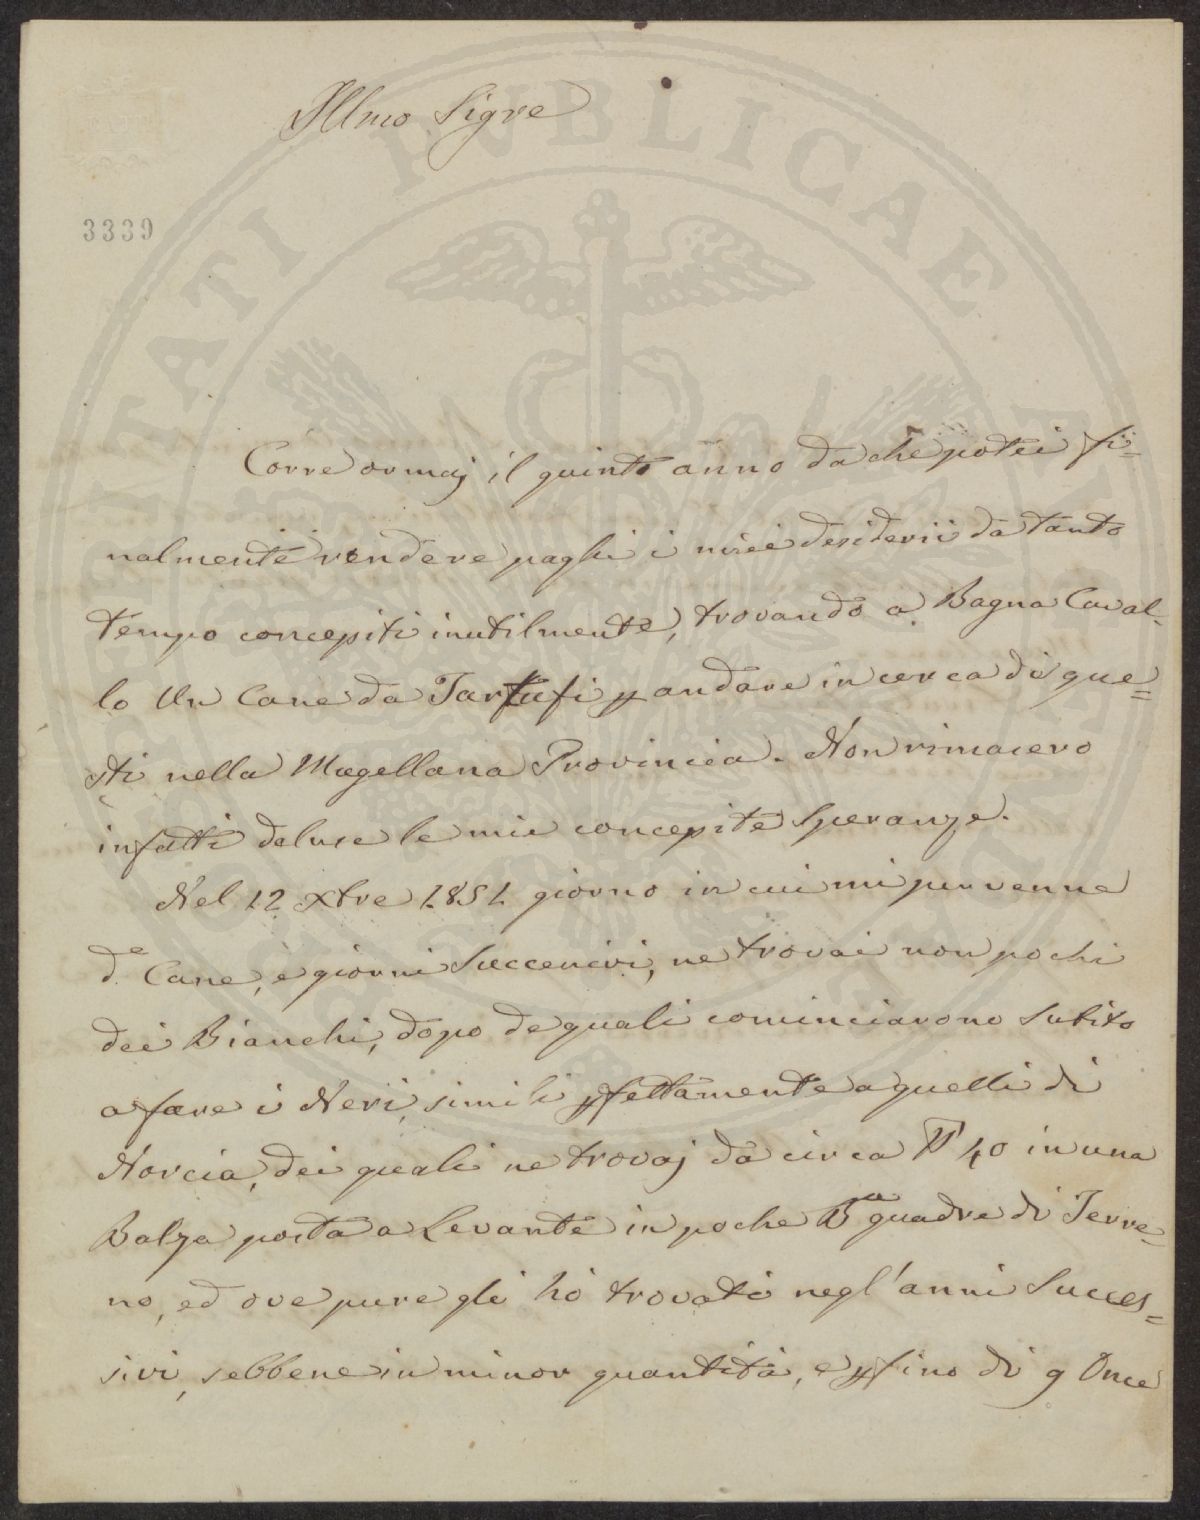 Illmo Sigre
3339
Corre ormaj il quinto anno da che potei fi=
nalmente rendere paghi i miei desiderii da tanto
tempo concepiti inutilmente, trovando a Bagna Caval-
lo Un Cane da Tartufi p andare in cerca di que=
sti nella Magellana Provincia. Non rimasero
infatti deluse le mie concepite Speranze.
Nel 12 Xbre 1851 giorno in cui mi pervenne
do Cane, e giorni Successivi, ne trovai non pochi
dei Bianchi, dopo de quali cominciarono Subito
a fare i Neri, simili pfettamente a quelli di
Norcia, dei quali ne trovaj da circa 40 in una
Balza posta a Levante in poche quadre di Terre=
no, ed ove pure gli hò trovati negl'anni Succes=
sivi, sebbene in minor quantità, e pfino di 9 Once
PUBLICAE